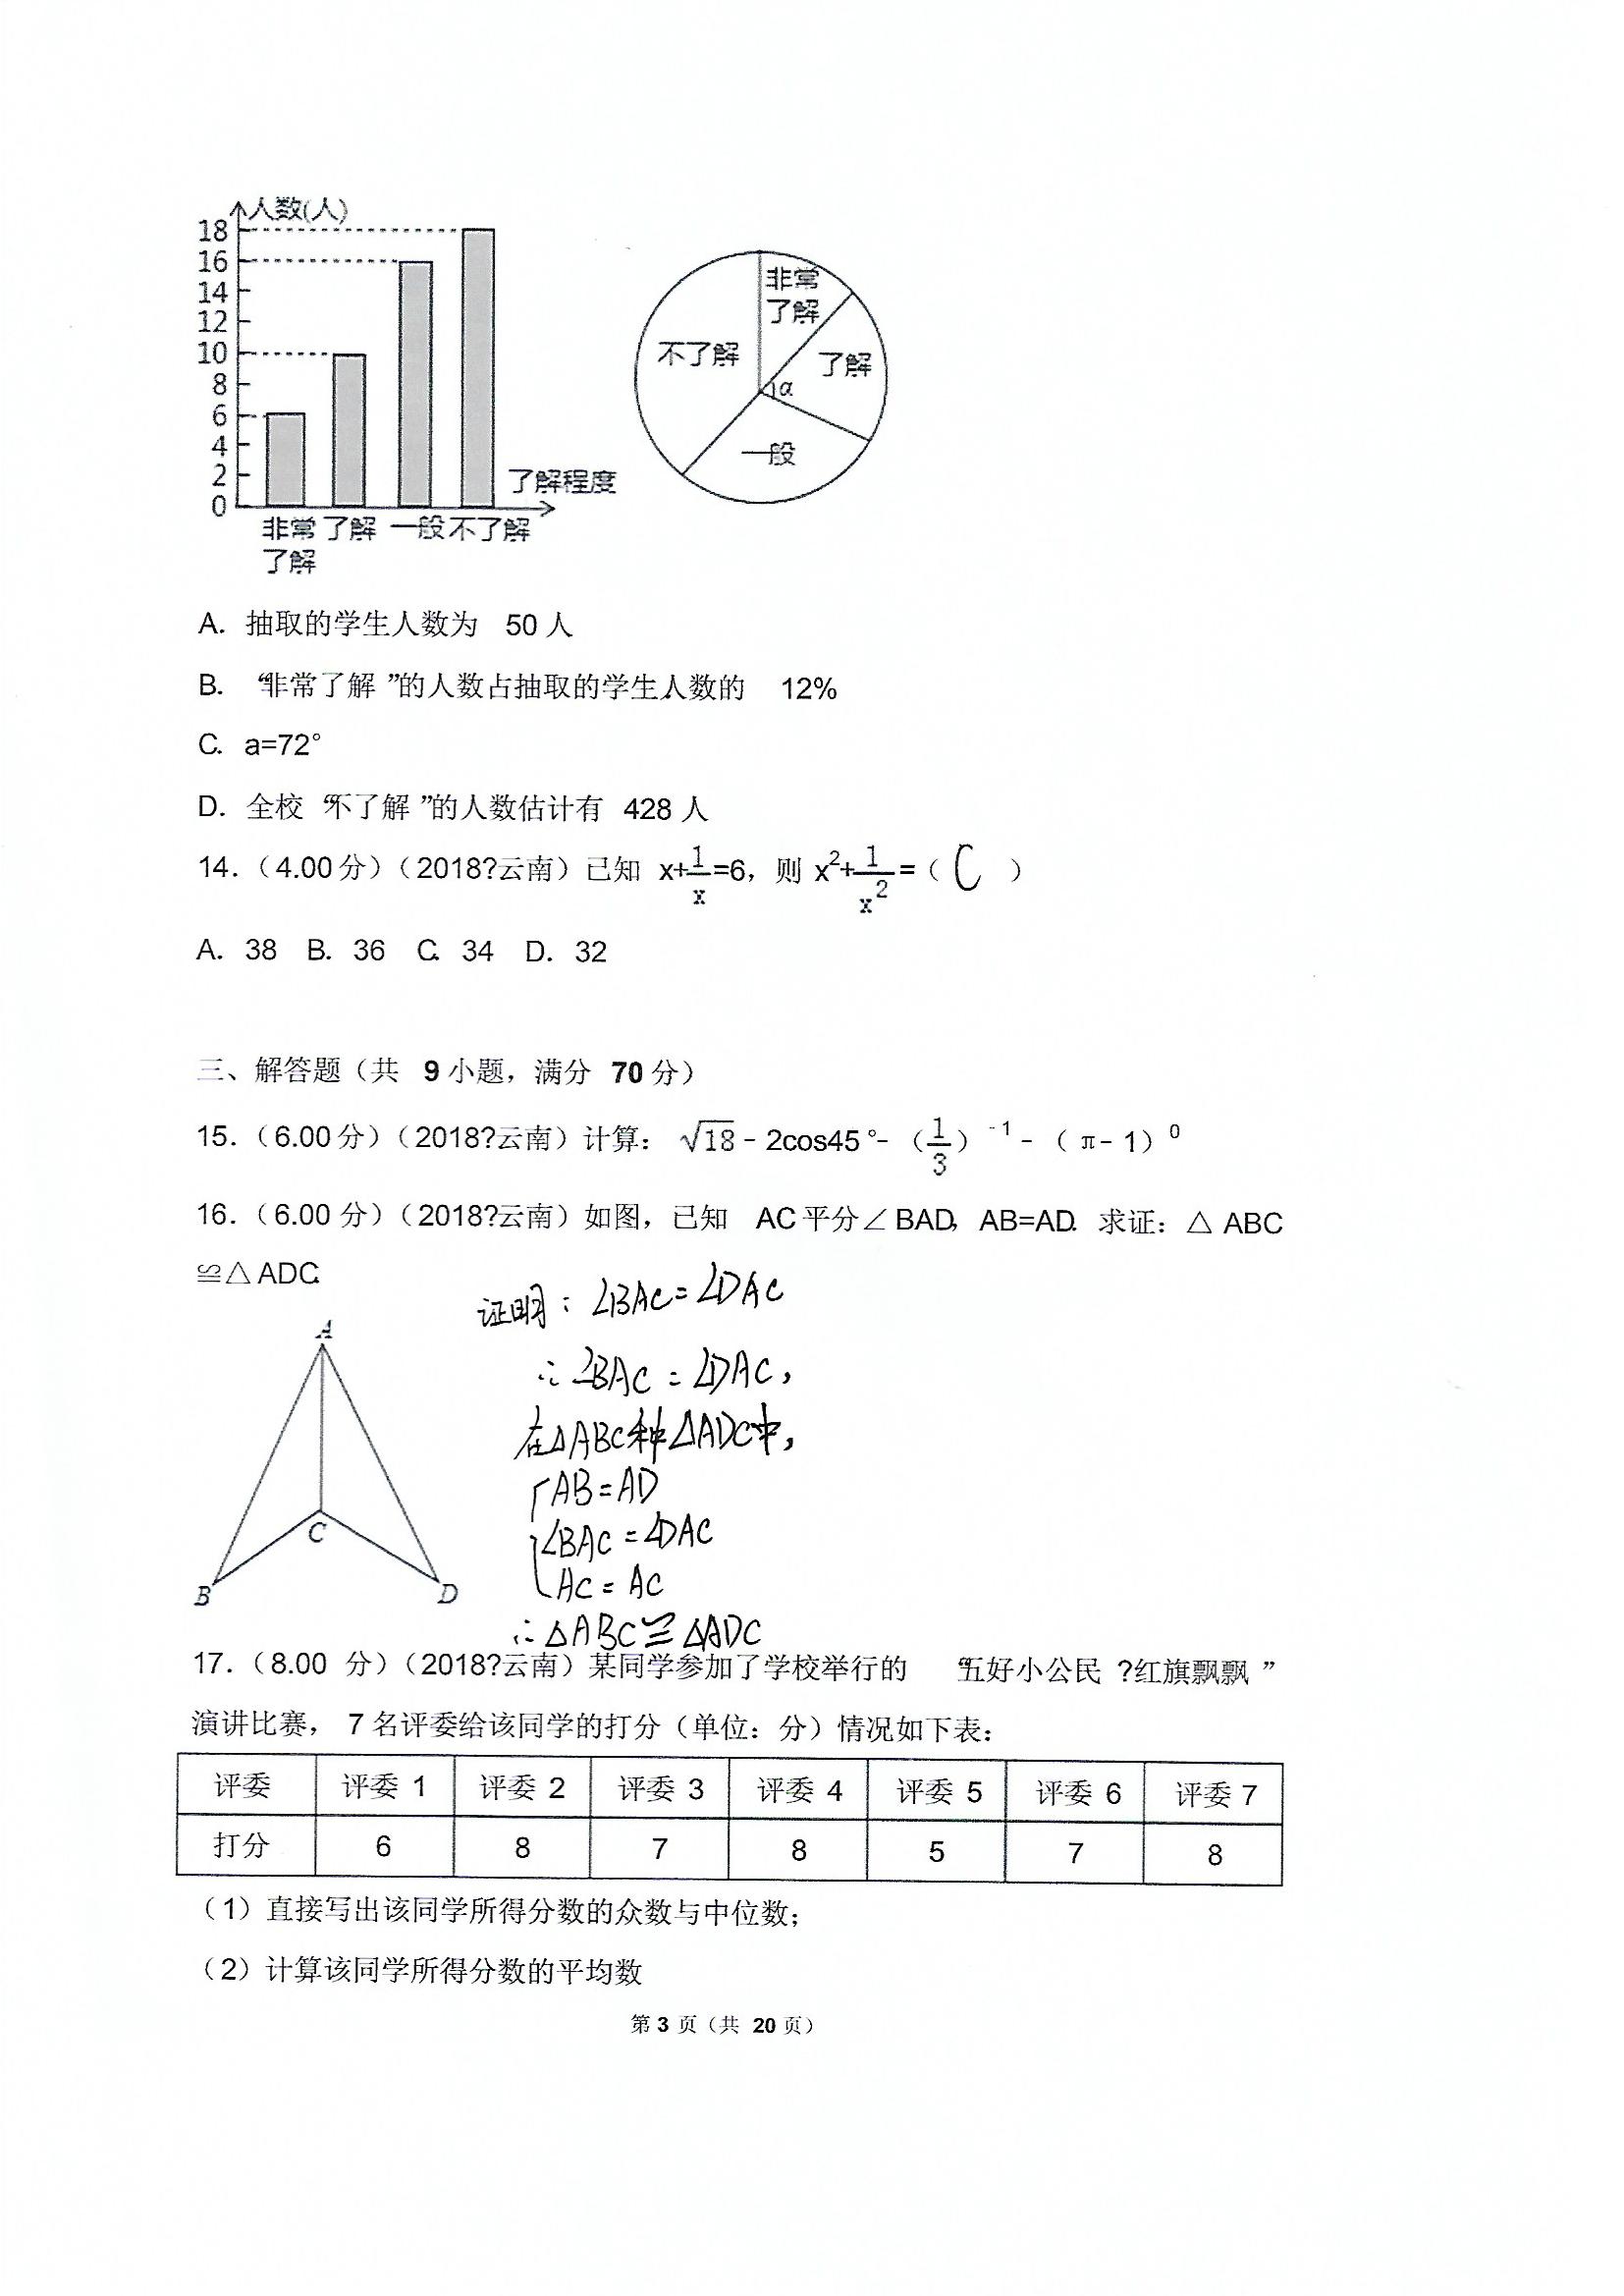 人数(人)
18
16
14
12
10
8
6
4
2
0
了解程度
非常 了解 一般 不了解
了解
非常
了解
不了解
了解
α
一般
A. 抽取的学生人数为 50 人
B. “非常了解”的人数占抽取的学生人数的 12%
C. a=72°
D. 全校“不了解”的人数估计有 428 人
14.（4.00分）（2018?云南）已知 x+1/x=6，则 x²+1/x²=（ C ）
A. 38 B. 36 C. 34 D. 32
三、解答题（共 9 小题，满分 70 分）
15.（6.00分）（2018?云南）计算：√18﹣2cos45°﹣（1/3）⁻¹﹣（π﹣1）⁰
16.（6.00 分）（2018?云南）如图，已知 AC平分∠BAD，AB=AD. 求证：△ABC
≌△ADC.
A
B
C
D
证明：∠BAC=∠DAC
∴∠BAC=∠DAC，
在△ABC和△ADC中，
AB=AD
∠BAC=∠DAC
AC=AC
∴△ABC≌△ADC
17.（8.00 分）（2018?云南）某同学参加了学校举行的“五好小公民?红旗飘飘”
演讲比赛，7名评委给该同学的打分（单位：分）情况如下表：
评委 评委 1 评委 2 评委 3 评委 4 评委 5 评委 6 评委 7
打分 6 8 7 8 5 7 8
（1）直接写出该同学所得分数的众数与中位数；
（2）计算该同学所得分数的平均数
第 3 页（共 20 页）